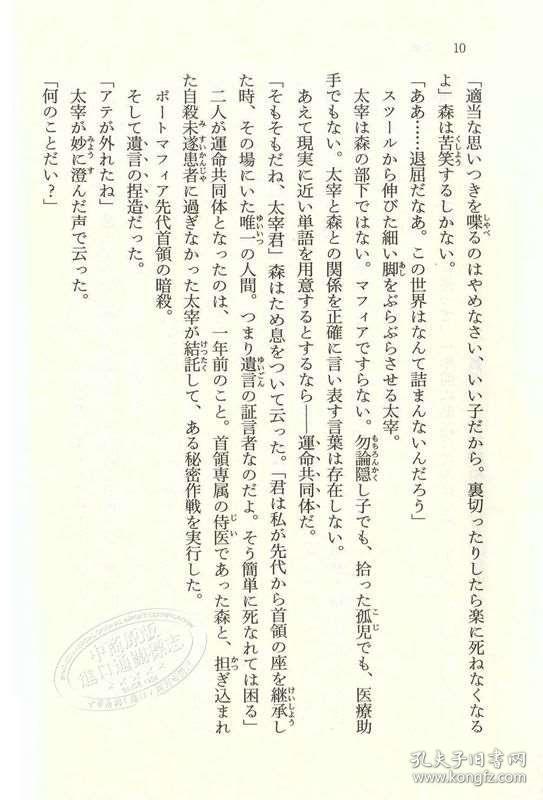 10
「適当な思いつきを喋るのはやめなさい、いい子だから。裏切ったりしたら楽に死ねなくなる
よ」森は苦笑するしかない。
「ああ……退屈だなあ。この世界はなんて詰まんないんだろう」
スツールから伸びた細い脚をぶらぶらさせる太宰。
太宰は森の部下ではない。マフィアですらない。勿論隠し子でも、拾った孤児でも、医療助
手でもない。太宰と森との関係を正確に言い表す言葉は存在しない。
あえて現実に近い単語を用意するとするなら――運命共同体だ。
「そもそもだね、太宰君」森はため息をついて云った。「君は私が先代から首領の座を継承し
た時、その場にいた唯一の人間。つまり遺言の証言者なのだよ。そう簡単に死なれては困る」
二人が運命共同体となったのは、一年前のこと。首領専属の侍医であった森と、担ぎ込まれ
た自殺未遂患者に過ぎなかった太宰が結託して、ある秘密作戦を実行した。
ポートマフィア先代首領の暗殺。
そして遺言の捏造だった。
「アテが外れたね」
太宰が妙に澄んだ声で云った。
「何のことだい？」
孔夫子旧书网
www.kongfz.com